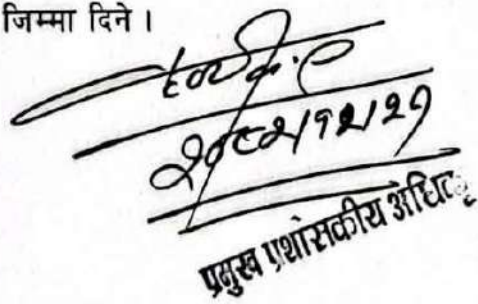 जिम्मा दिने ।
२०८२।१२।२१
प्रमुख प्रशासकीय